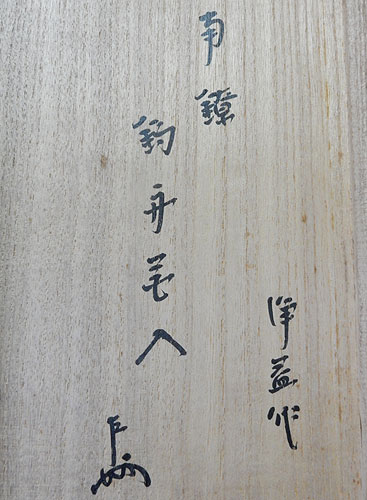 南鐐
釣舟花入
浄益作